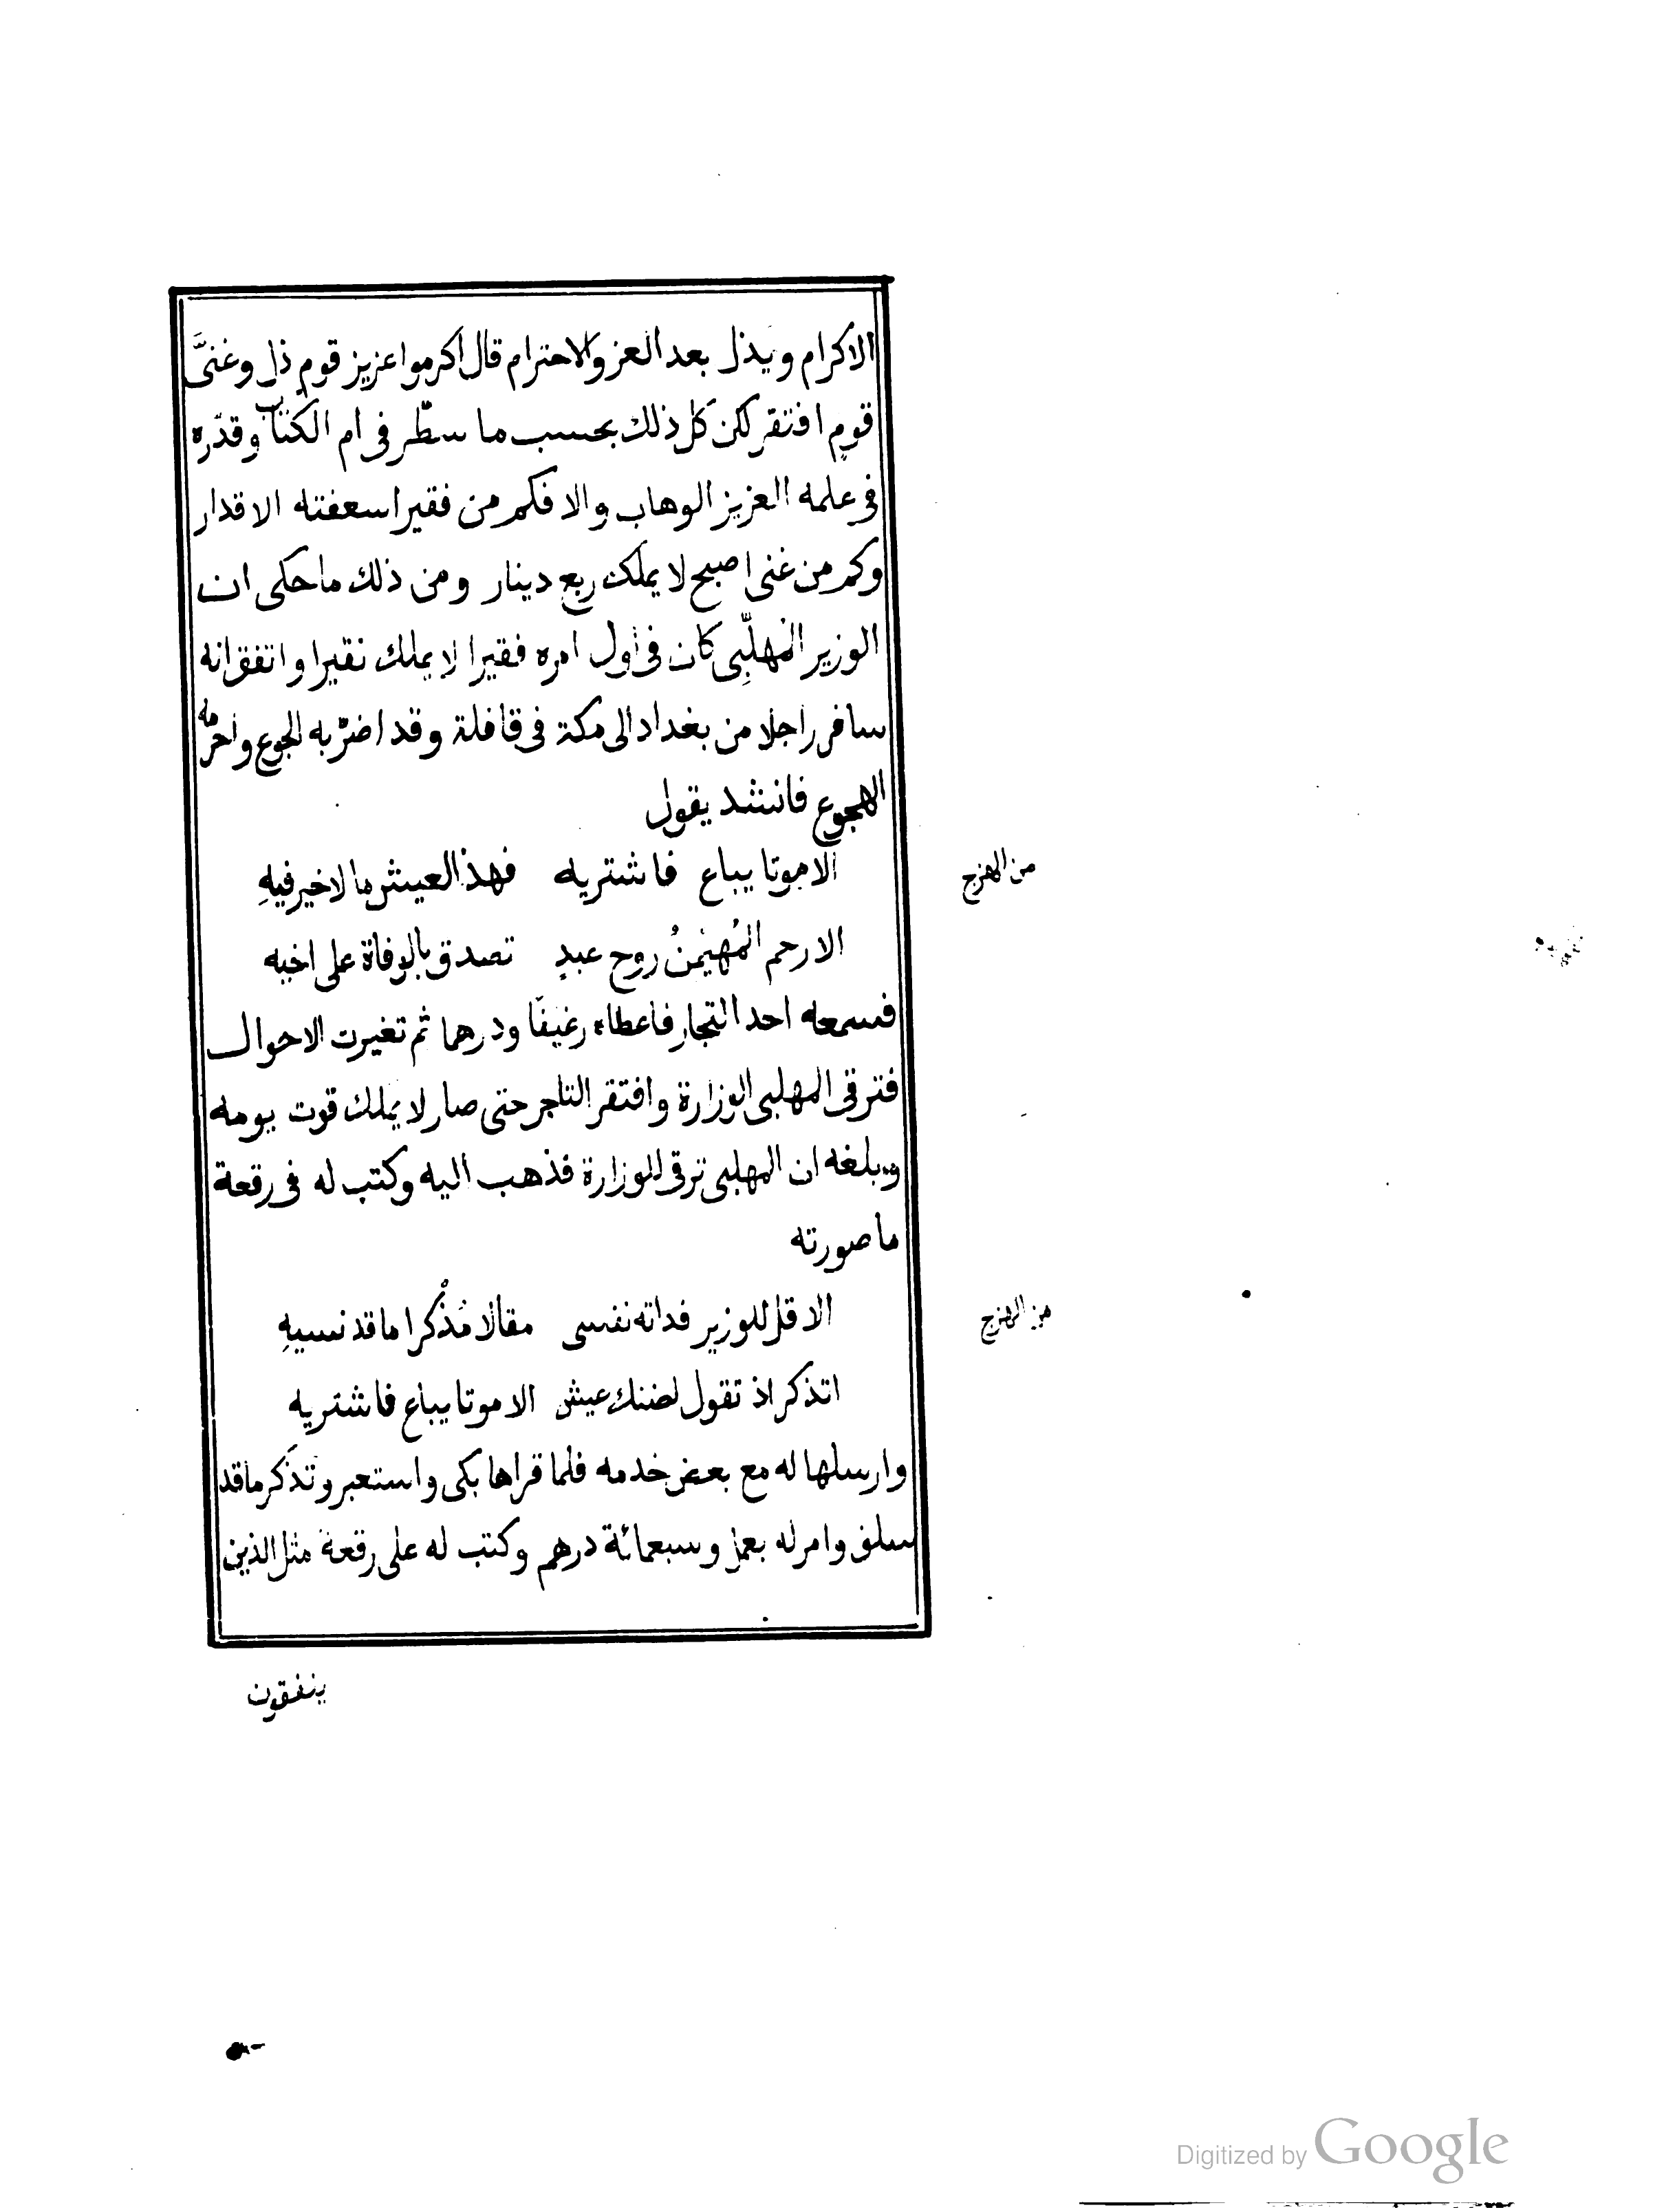 الاكرام ويذل بعد العز والاحترام قال اكرموا عزيز قوم ذل وغنىَّ
قومٍ افتقر لكن كل ذلك بحسب ما سطّر فى ام الكتاب وقدّره
فى علمه العزيز الوهاب والا فكم من فقير اسعفته الاقدار
وكم من غنى اصبح لا يملك ربع دينار ومن ذلك ما حكى ان
الوزير المُهلّبِى كان فى أول امره فقيرا لا يملك نقيرا واتفق انه
سافر راجلا من بغداد الى مكة فى قافلة وقد اضرّ به الجوع واحرمه
الهجوع فانشد يقول
الا موتا يباع فاشتريه فهذا العيش ما لا خير فيهِ
من الهزج
الا رحم المُهيمنُ روح عبدٍ تصدق بالوفاة على اخيه
فسمعه احد التجار فاعطاه رغيفًا ودرهما ثم تغيرت الاحوال
فترقى المهلبى الوزارة وافتقر التاجر حتى صار لا يملك قوت يومه
وبلغه ان المهلبى ترقى للوزارة فذهب اليه وكتب له فى رقعة
ما صورته
الا قل للوزير فداته نفسى مقالا مُذْكرا ما قد نسيهِ
من الهزج
اتذكر اذ تقول لضنك عيش الا موتا يباع فاشتريه
وارسلها له مع بعض خدمه فلما قراها بكى واستعبر وتذَكر ما قد
سلف وامر له بعمل وسبعمائة درهم وكتب له على رقعة مثل الذين
ينفقون
Digitized by Google